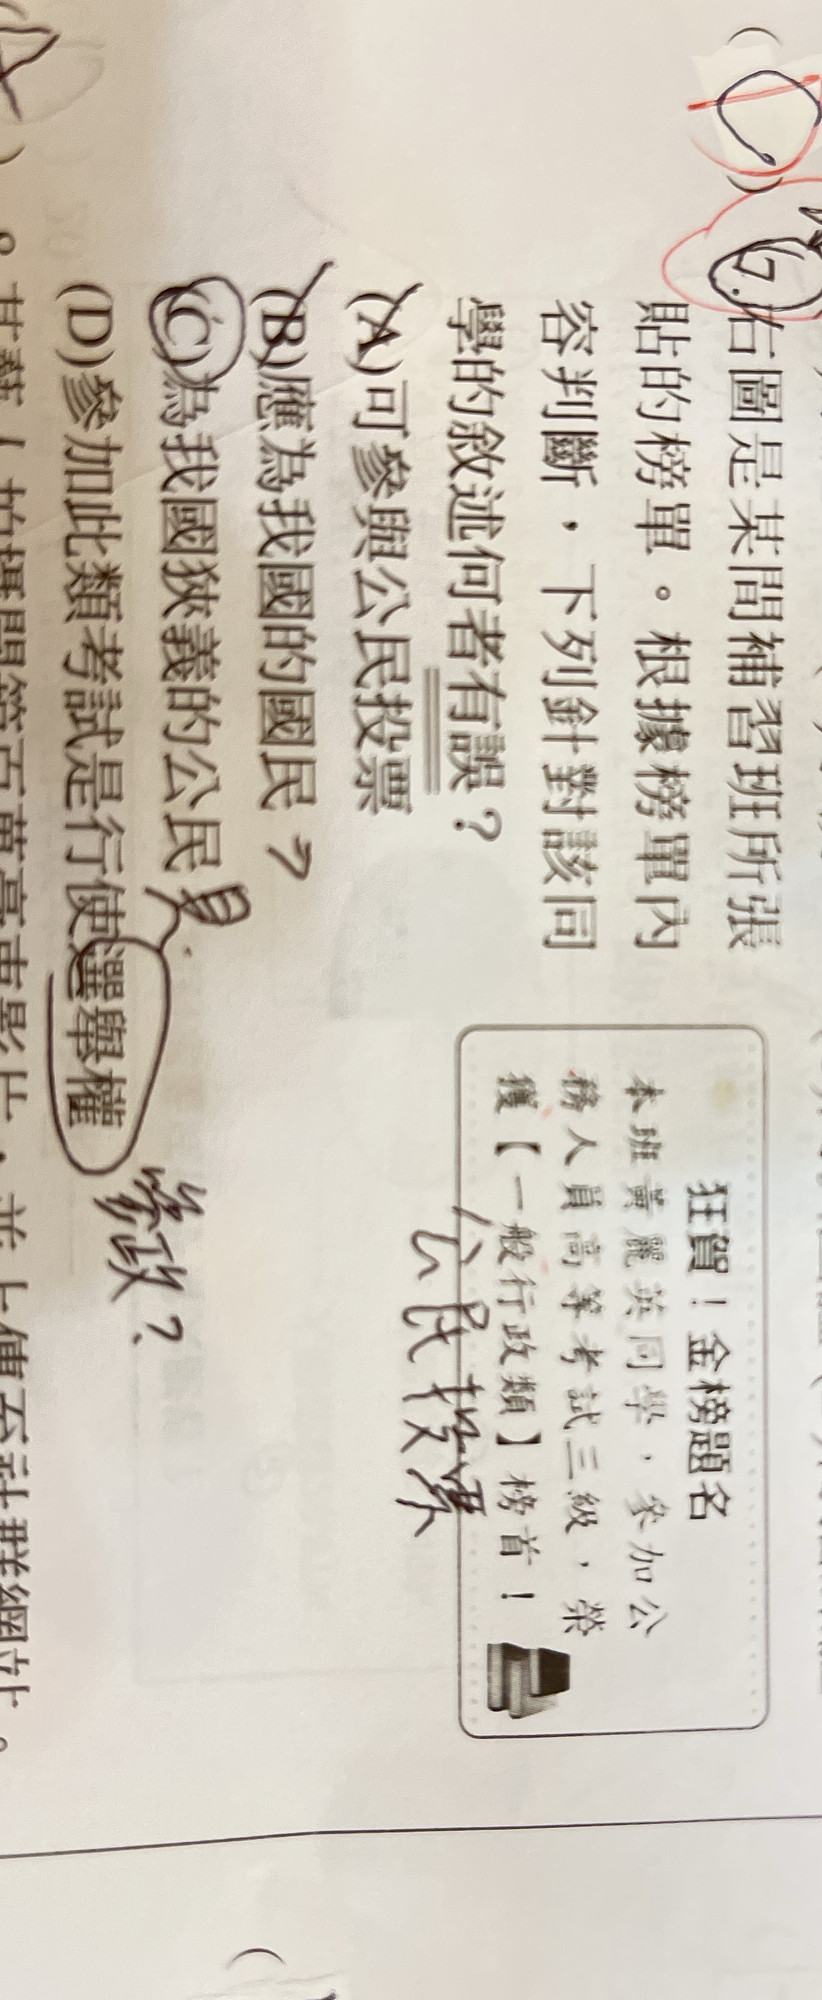 7.右圖是某間補習班所張
貼的榜單。根據榜單內
容判斷，下列針對該同
學的敘述何者有誤？
(A)可參與公民投票
(B)應為我國的國民
(C)為我國狹義的公民
(D)參加此類考試是行使選舉權
參政？
狂賀！金榜題名
本班黃麗英同學，參加公
務人員高等考試三級，榮
獲【一般行政類】榜首！
公民投票